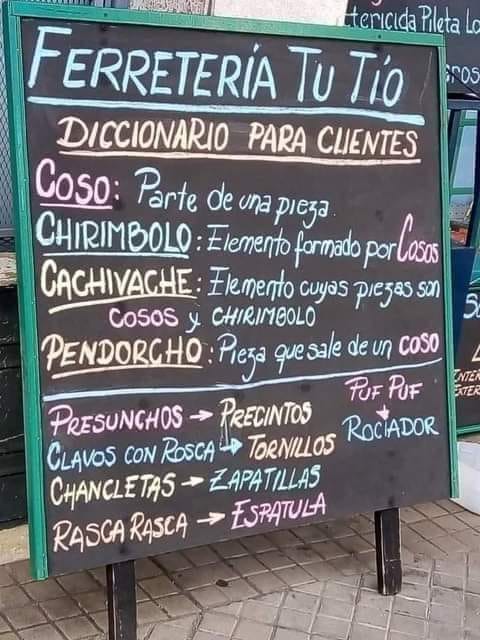 FERRETERÍA TU TÍO
DICCIONARIO PARA CLIENTES
COSO: Parte de una pieza.
CHIRIMBOLO: Elemento formado por Cosos
CACHIVACHE: Elemento cuyas piezas son
COSOS y CHIRIMBOLO
PENDORCHO: Pieza que sale de un COSO
PRESUNCHOS → PRECINTOS
CLAVOS CON ROSCA → TORNILLOS
CHANCLETAS → ZAPATILLAS
RASCA RASCA → ESPATULA
PUF PUF
→ ROCIADOR
Pileta